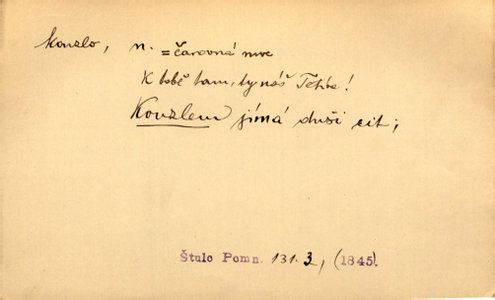 kouzlo, n. = čarovná moc
K tobě tam, ty náš
Kouzlem jímá duši cit;
Štulc Pomn. 131.3, (1845).